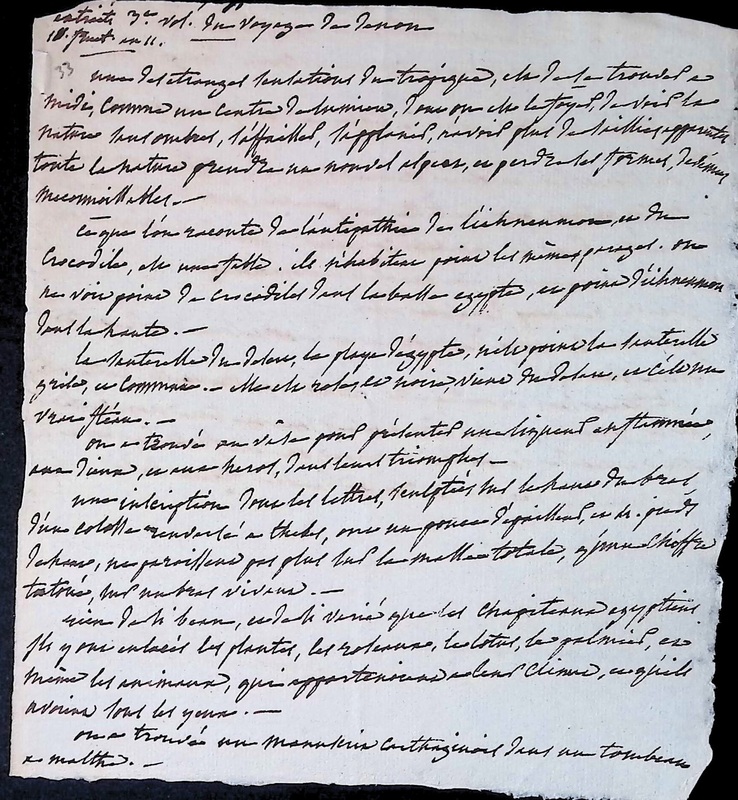 extraits 3e vol. du voyage de denon
en 11.
33
une des etranges sensations du tropique, est de se trouver a
midi, comme un centre de lumiere, dont on est le foyer, de voir la
nature sans ombres, s'applanir, n'avoir plus de saillies apparentes
toute la nature prendre un nouvel aspect, et perdre ses formes, devenues
meconnoissables. —
ce que l'on raconte de l'antipathie de l'ichneumon, et du
crocodile, est une fable. ils n'habitent point les mêmes parages. on
ne voit point de crocodiles dans la basse egypte, et point d'ichneumon
dans la haute. —
la sauterelle du desert, la playe d'egypte, n'est point la sauterelle
grise, et commune. — elle est rose et noire, vient du desert, et c'est un
vrai fléau. —
on a trouvé un vase pour présenter une liqueur enflammée,
aux dieux, et aux heros, dans leurs triomphes. —
une inscription dont les lettres, sculptées sur le haut du bras
d'un colosse renversé a thebes, ont un pouce d'épaisseur, et pieds
de haut, ne paroissent pas plus sur la masse totale, qu'un chiffre
tatoué, sur un bras vivant. —
rien de si beau, et de si varié que les chapiteaux egyptiens
ils y ont enlacés les plantes, les roseaux, le lotus, le palmier, et
même les animaux, qui appartenoient a leur climat, et qu'ils
avoient sous les yeux. —
on a trouvé un manuscrit carthaginois dans un tombeau
a malthe. —